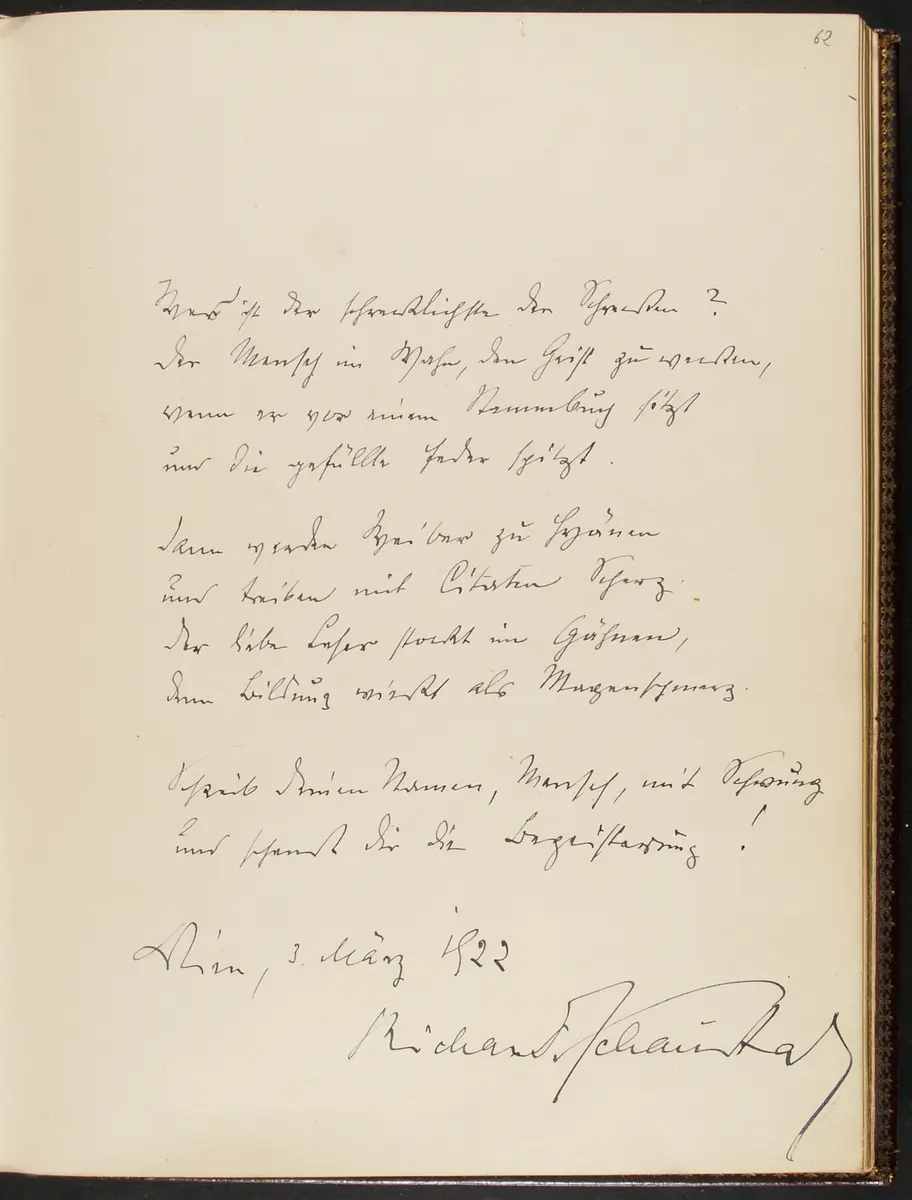 62
Was ist der schrecklichste der Schrecken?
Der Mensch im Wahn, den Geist zu wecken,
wenn er vor einem Stammbuch sitzt
und die gefüllte Feder spitzt.
Dann werden Weiber zu Hyänen
und treiben mit Citaten Scherz.
Der liebe Leser stockt im Gähnen,
denn Bildung wirkt als Magenschmerz.
Schreib deinen Namen, Mensch, mit Schwung
und schenk dir die Begeisterung!
Wien, 3. März 1922
Richard Schaukal